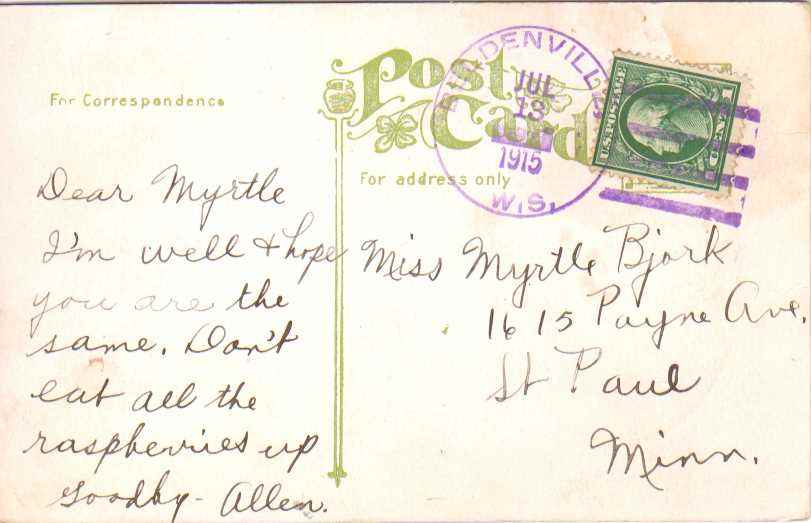 Post Card
For Correspondence
For address only
DENVILLE
JUL
13
1915
WIS.
U.S. POSTAGE
1 CENT
Dear Myrtle
I'm well & hope
you are the
same. Don't
eat all the
raspberries up
Goodby - Allen.
Miss Myrtle Bjork
1615 Payne Ave,
St Paul
Minn.